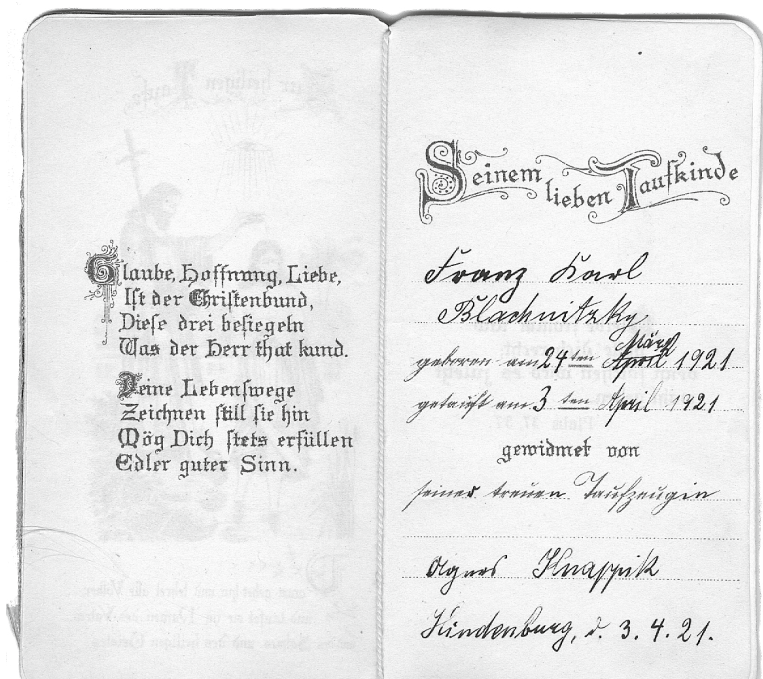 Glaube, Hoffnung, Liebe,
Ist der Christenbund,
Diese drei besiegeln
Was der Herr that kund.
Deine Lebenswege
Zeichnen still sie hin
Mög Dich stets erfüllen
Edler guter Sinn.
Seinem lieben Taufkinde
Franz Karl
Blachnitzky
März
geboren am 24ten April 1921
getauft am 3ten April 1921
gewidmet von
seiner treuen Taufzeugin
Agnes Knappik
Hindenburg, d. 3.4.21.